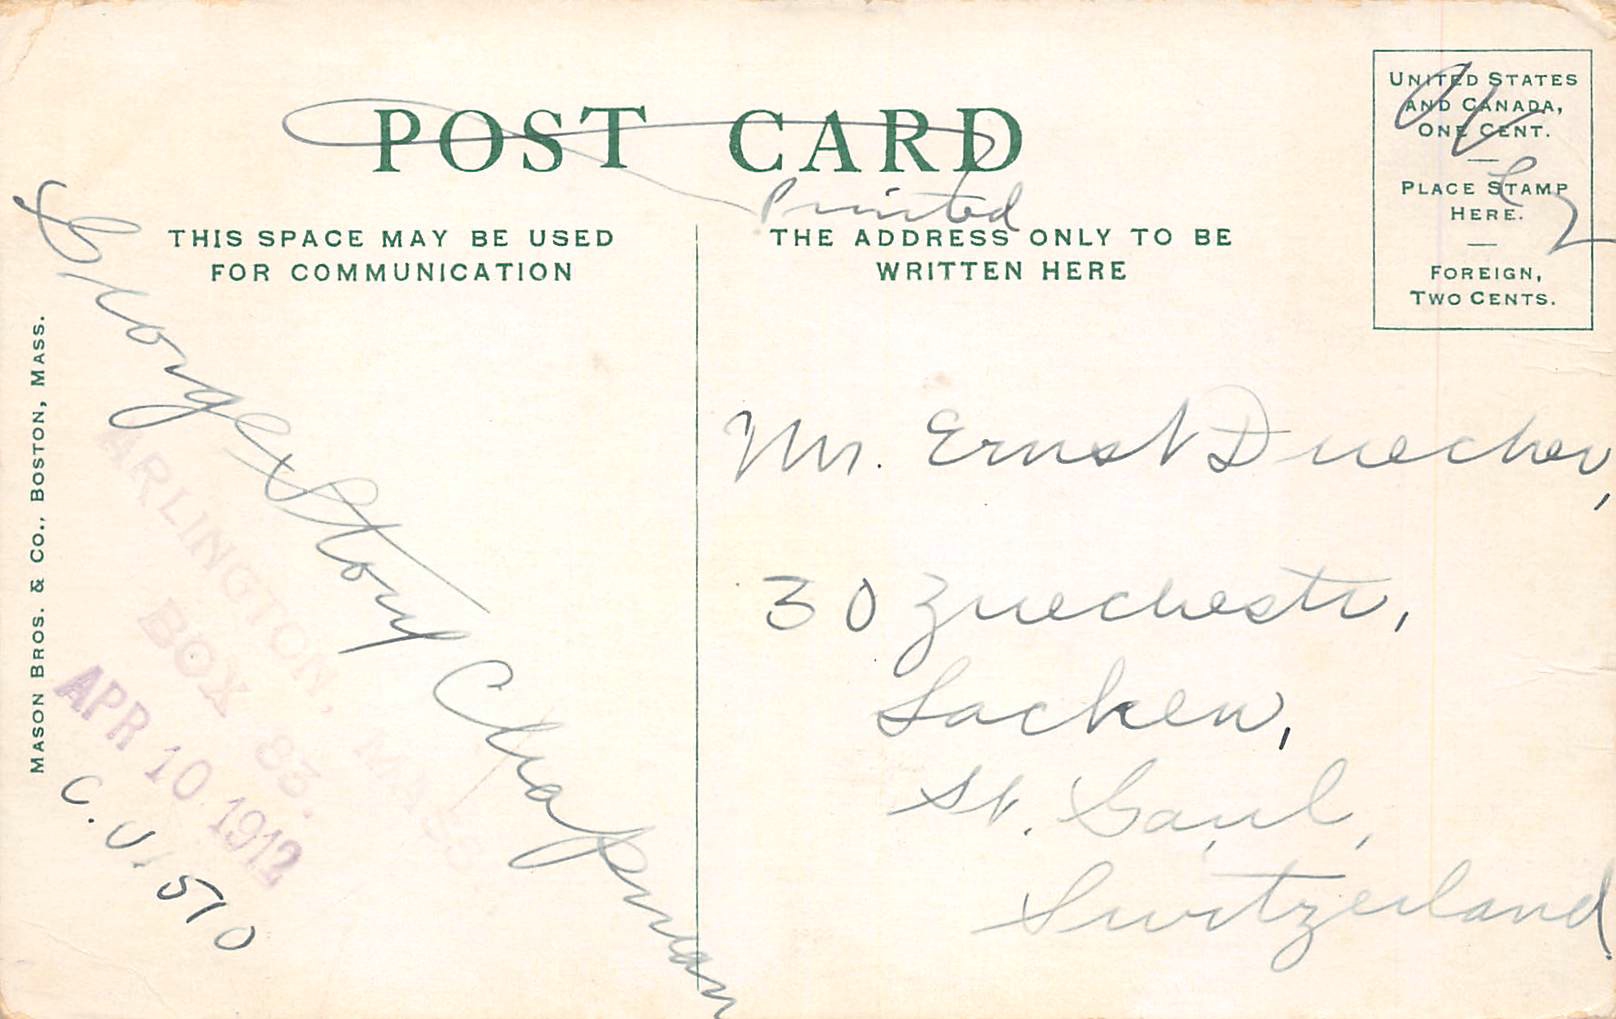 POST CARD
Printed
THIS SPACE MAY BE USED
FOR COMMUNICATION
THE ADDRESS ONLY TO BE
WRITTEN HERE
UNITED STATES
AND CANADA,
ONE CENT.
PLACE STAMP
HERE.
FOREIGN,
TWO CENTS.
MASON BROS. & CO., BOSTON, MASS.
George Story Chapman
ARLINGTON, MASS.
BOX 83.
APR 10 1912
C. U. 1570
Mr. Ernst Duecher,
30 Zuerchestr,
Lachen,
St. Gaul,
Switzerland.